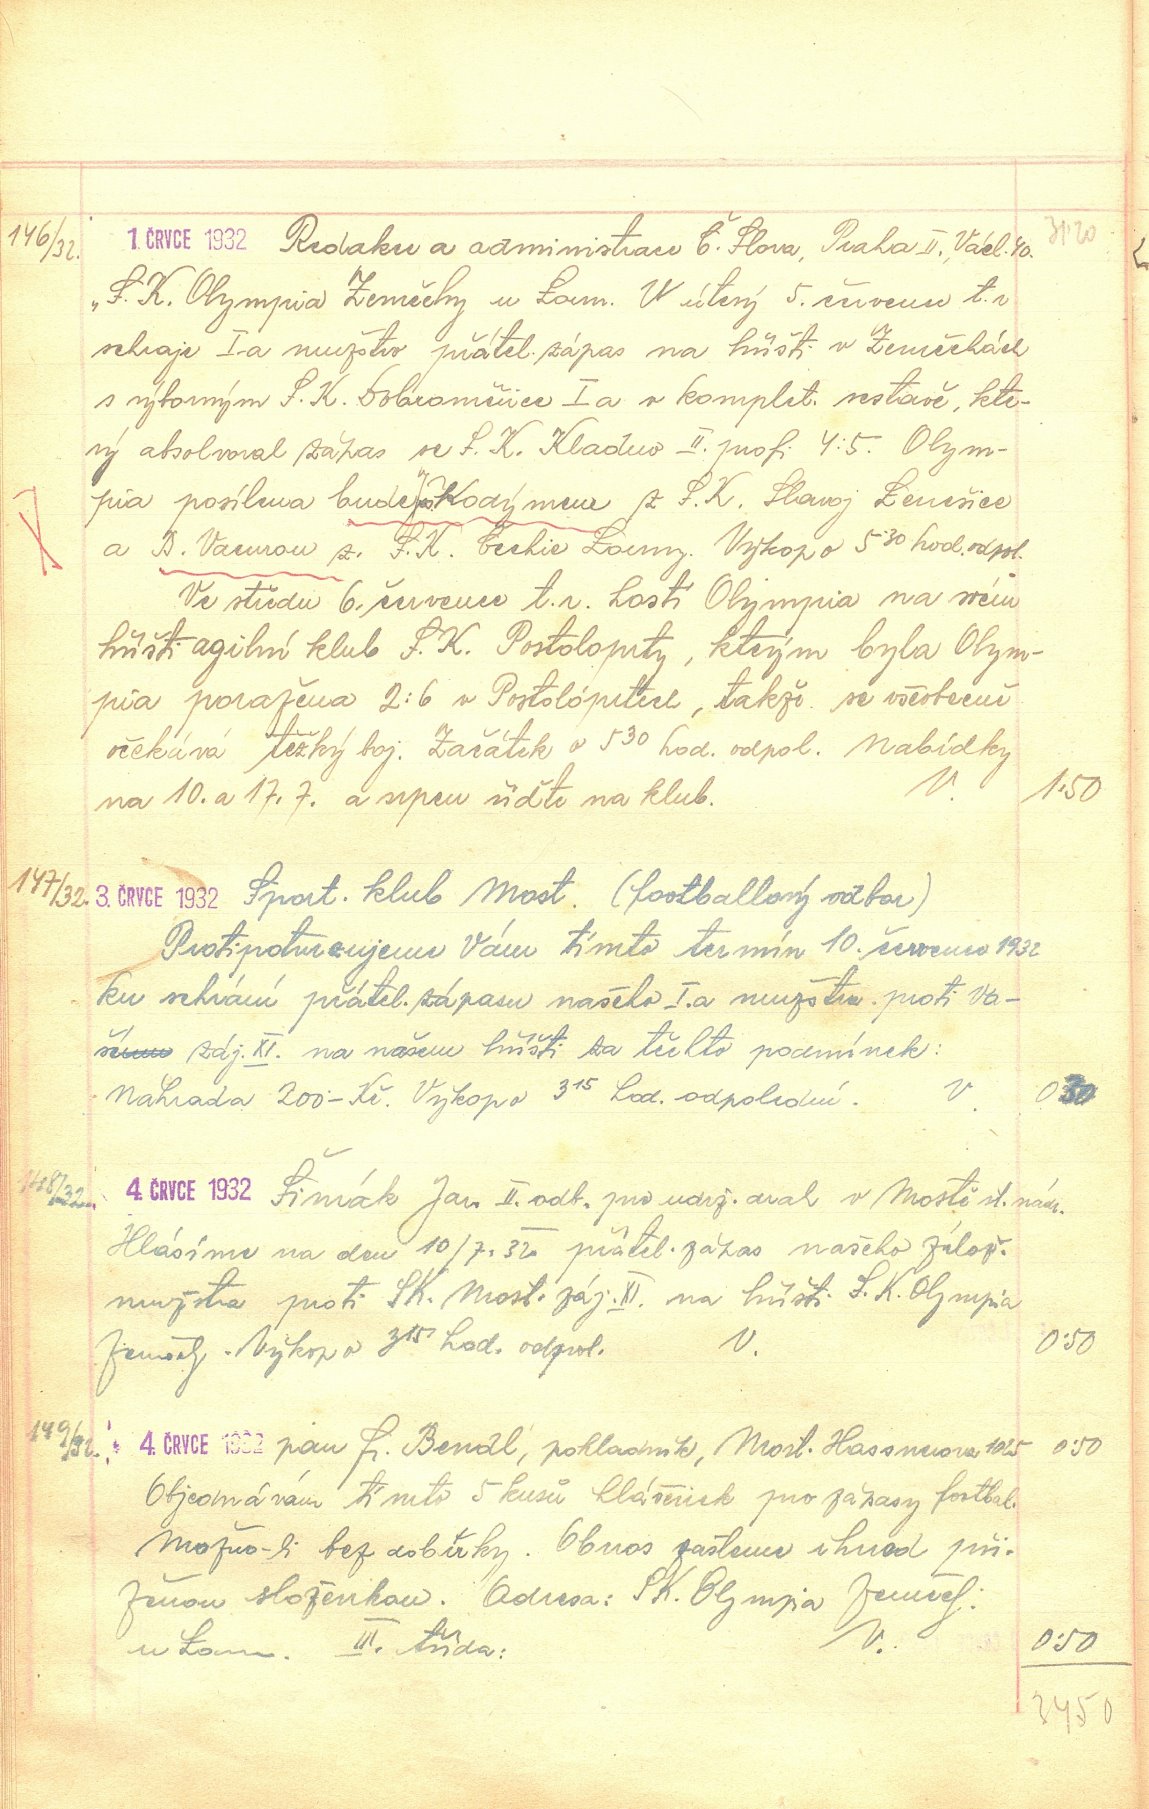 146/32. 1. ČRVCE 1932 Redakci a administraci Č. Slova, Praha II., Václ. 40. 31·20
„S. K. Olympia Zeměchy u Loun. V úterý 5. července t. r.
sehraje I.a mužstvo přátel. zápas na hřišti v Zeměchách
s výborným S. K. Dobroměřice I a v komplet. sestavě, kte-
rý absolvoval zápas se S. K. Kladno II. prof. 4:5. Olym-
pia posílena bude Kodýmem z S. K. Slavoj Lenešice
a B. Vacurou z. S. K. Čechie Louny. Výkop o 5 30 hod. odpol.
Ve středu 6. července t. r. hostí Olympia na svém
hřišti agilní klub S. K. Postoloprty, kterým byla Olym-
pia poražena 2:6 v Postoloprtech, takže se všeobecně
očekává těžký boj. Začátek o 5 30 hod. odpol. Nabídky
na 10. a 17. 7. a srpen řiďte na klub. V. 1·50
147/32. 3. ČRVCE 1932 Sport. klub Most. (footballový odbor)
Protipotvrzujeme Vám tímto termín 10. července 1932
ku sehrání přátel. zápasu našeho I.a mužstva proti Va-
šemu záj. XI. na našem hřišti za těchto podmínek:
Náhrada 200- Kč. Výkop o 3 15 hod. odpolední. V. 0 30
148/32. 4. ČRVCE 1932 Šimák Jan II. odb. pro udrž. drah v Mostě st. nádr.
Hlásíme na den 10/7. 32 přátel. zápas našeho zálož.
mužstva proti SK. Most. záj. XI. na hřišti S. K. Olympia
Zeměchy. Výkop o 3 15 hod. odpol. V. 0·50
149/32. 4. ČRVCE 1932 pan Fr. Bendl, pokladník, Most. Hassnerova 1025 0·50
Objednávám tímto 5 kusů hlášenek pro zápasy footbal.
Možno-li bez dobírky. Obnos zašleme ihned při-
ženou složenkou. Adresa: SK. Olympia Zeměch:
u Loun. III. třída: V. 0·50
34 50